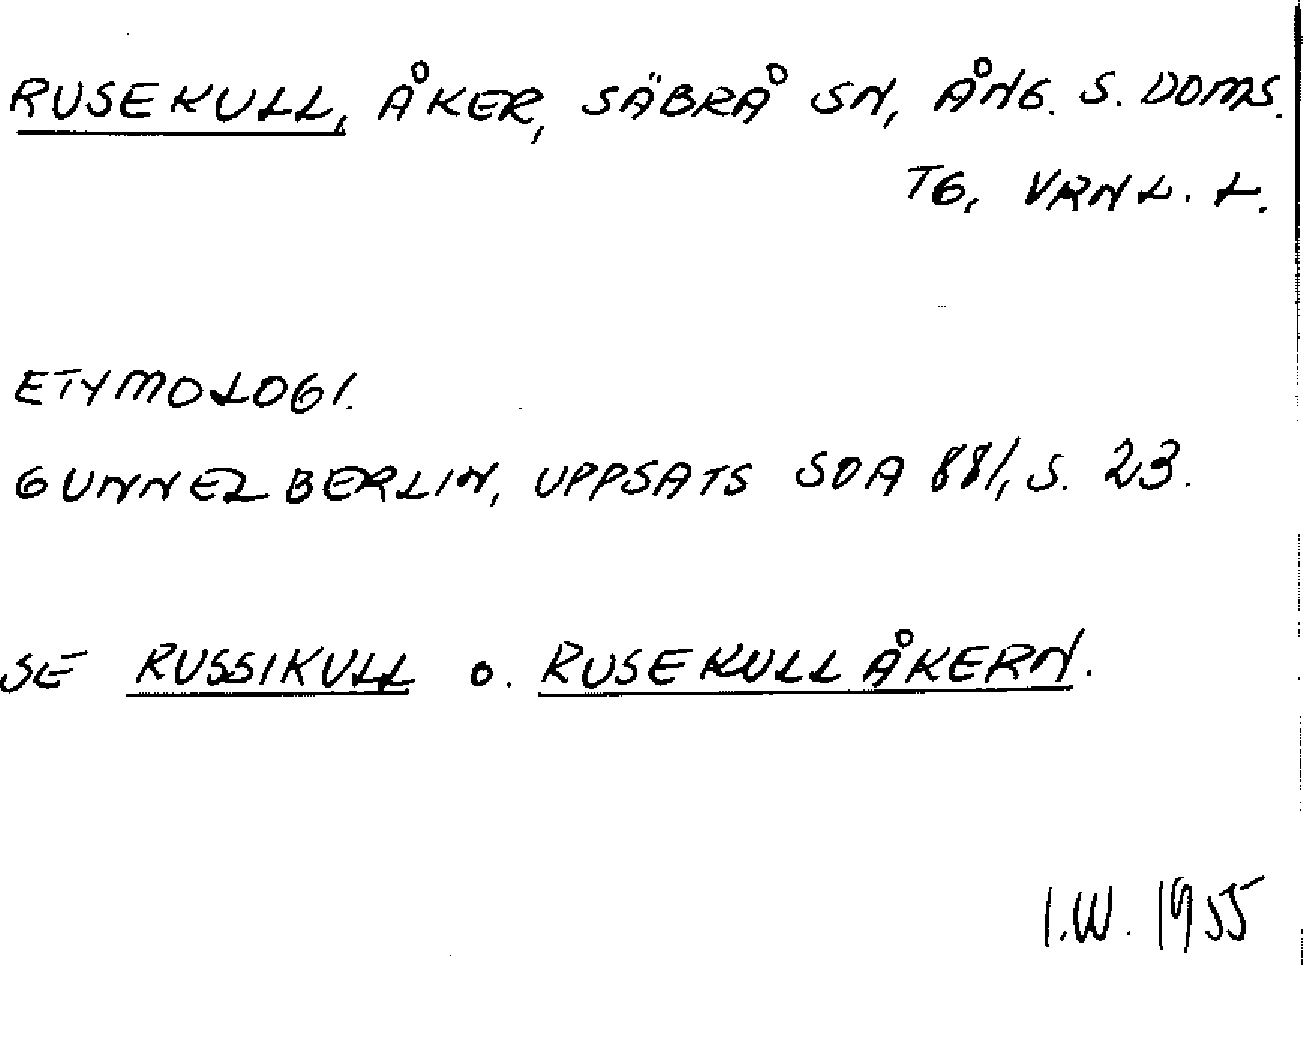 RUSEKULL, ÅKER, SÄBRÅ SN, ÅNG. S. DOMS.
TG, VRNL. L.
ETYMOLOGI.
GUNNEL BERLIN, UPPSATS SOA 881, S. 23.
SE RUSSIKULL O. RUSEKULLÅKERN.
I.W. 1955